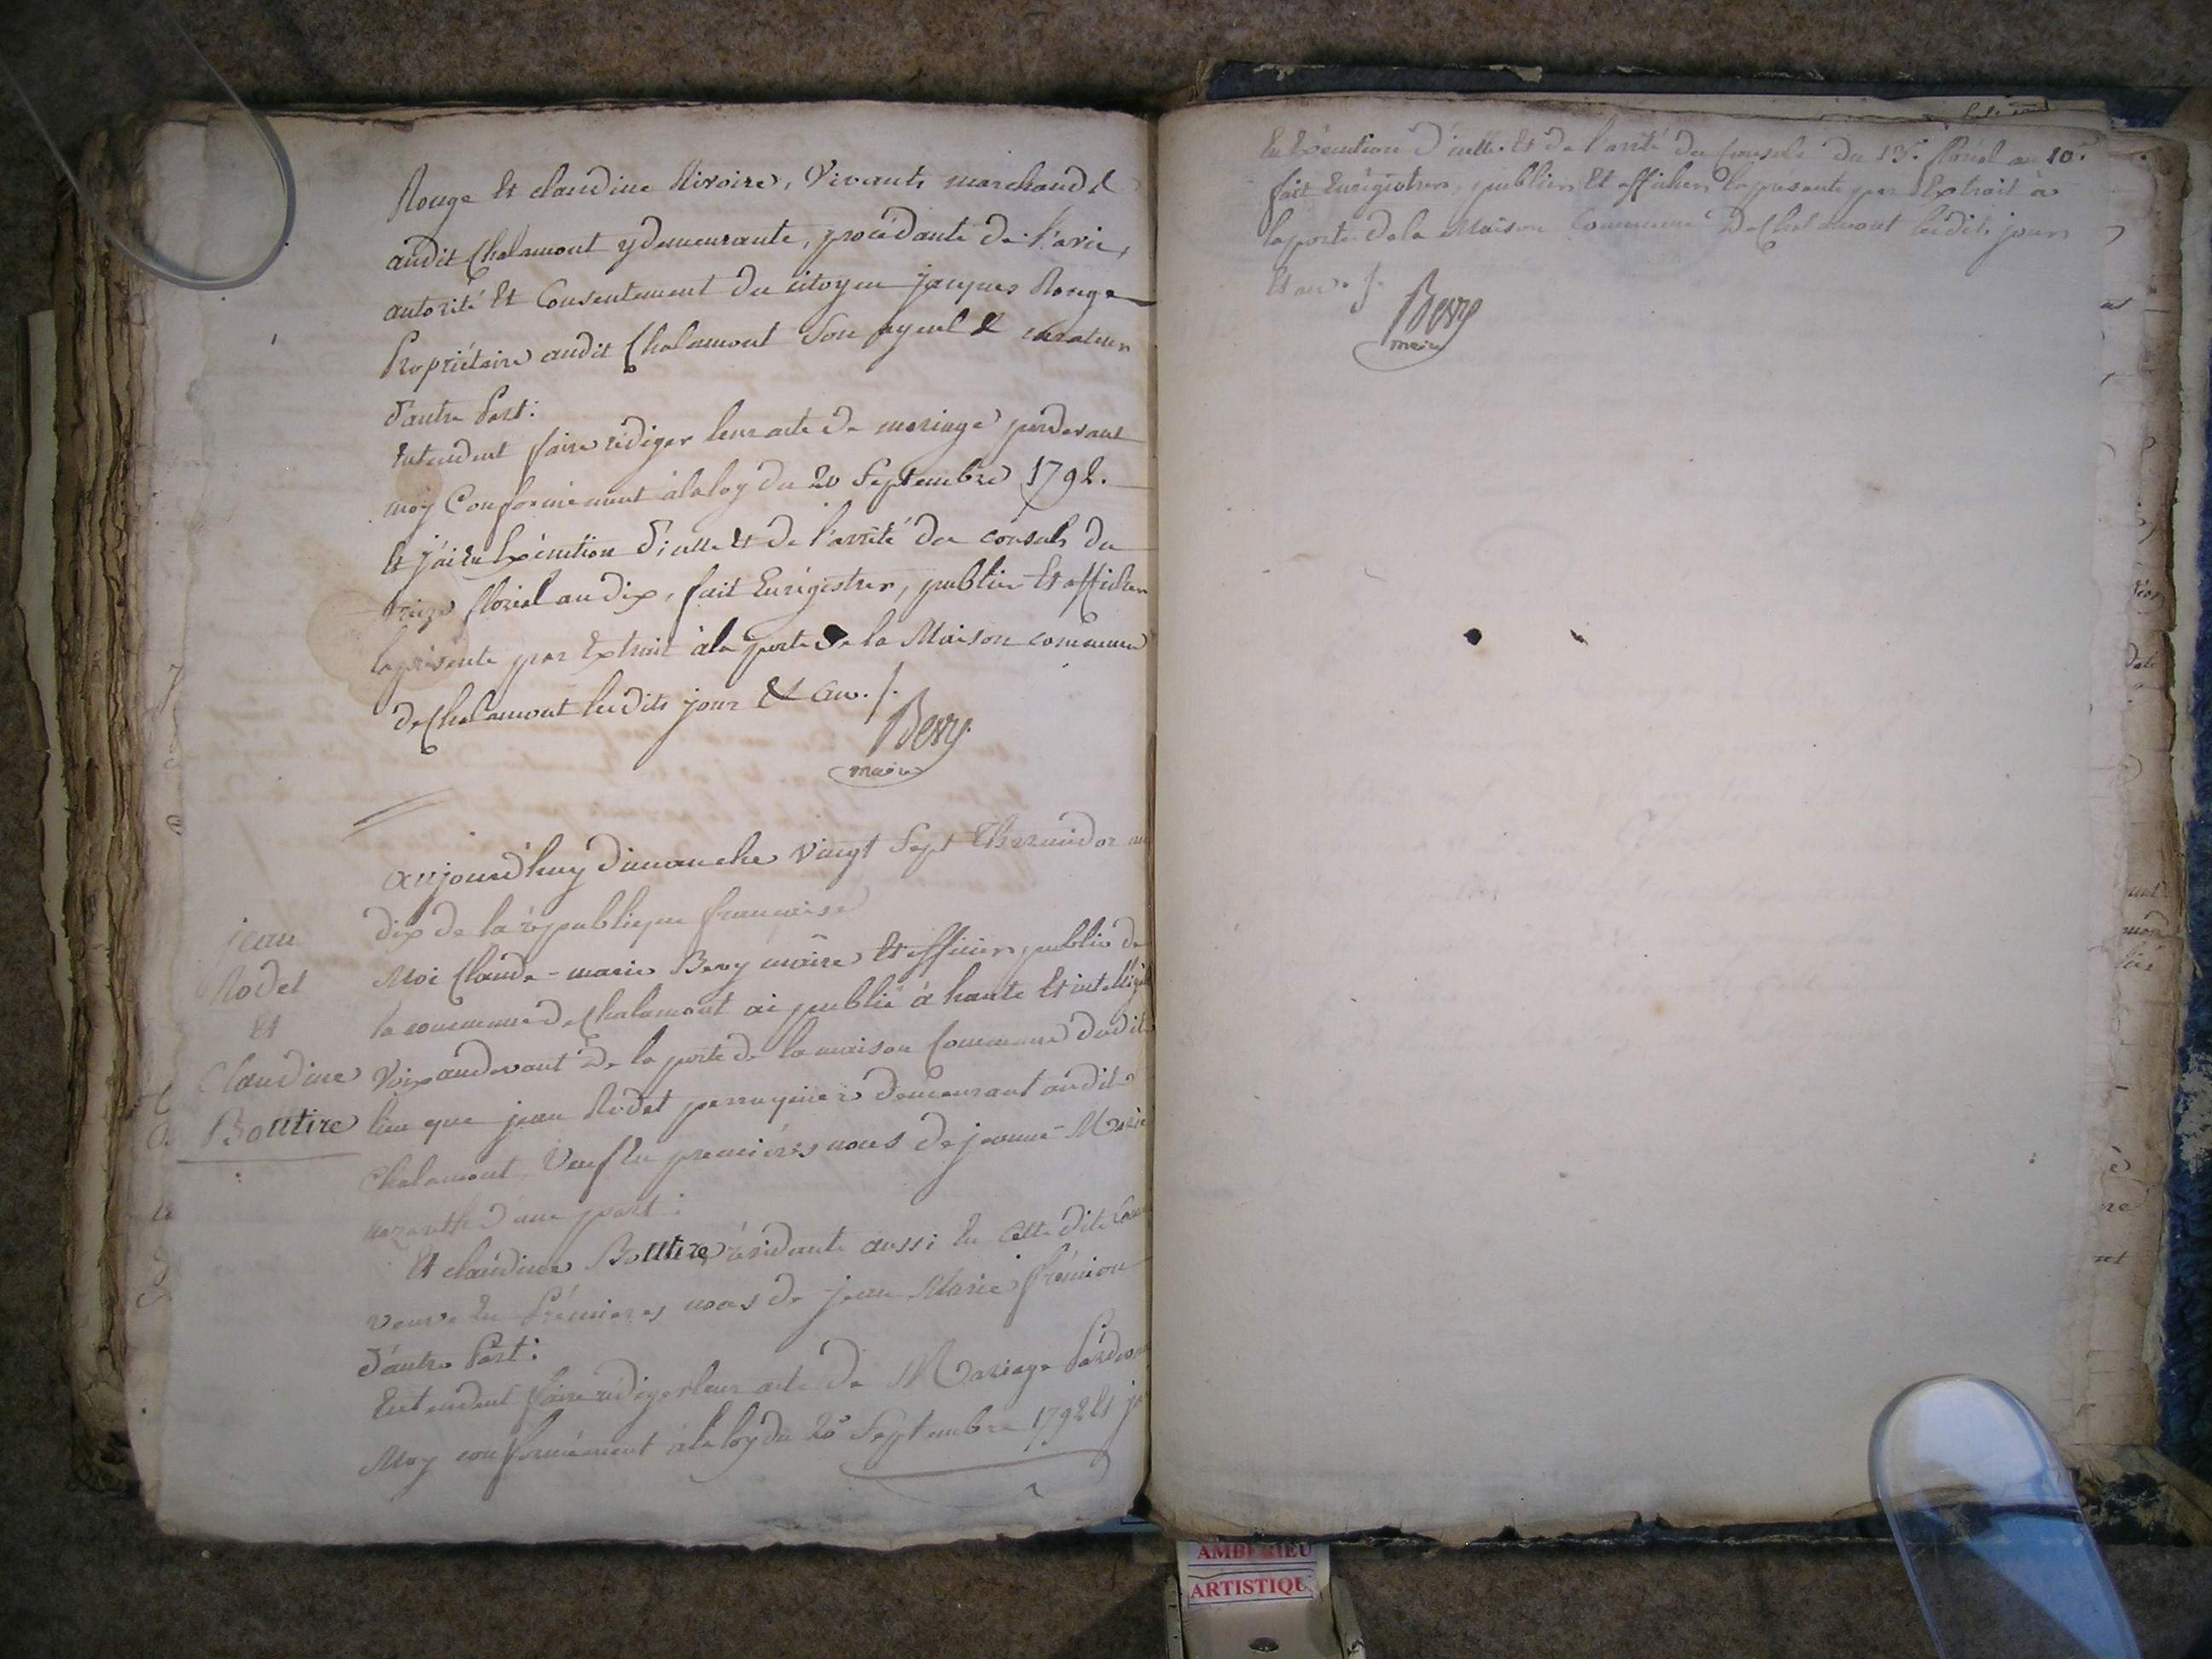 Rouge Et claudine Rivoire, Vivants marchands
audit Chalamont y demeurante, procédante de l'avis,
autorité Et Consentement du citoyen jacques Rouge
Propriétaire audit Chalamont Son ayeul & curateur
d'autre Part:
Entendent faire rédiger leur acte de mariage pardevant
moy Conformément à la loy du 20 Septembre 1792.
Et j'ai En Exécution d'icelle Et de l'arrêté des consuls du
treize floréal an dix, fait Enrégistrer, publier Et afficher
la présente par Extrait à la porte de la Maison commune
de Chalamont lesdits jour & an. /.
Bevy
maire
aujourd'huy dimanche vingt Sept Thermidor an
dix de la république française
Moi Claude-marie Bevy maire Et officier public de
la commune de Chalamont ai publié à haute Et intelligible
Voix audevant de la porte de la maison Commune dudit
lieu que jean Rodet perruquier demeurant audit
Chalamont Veuf En premières noces de jeanne-Marie
nazareth d'une part:
Et claudine Boutire résidante aussi En cette dite
veuve En Prémieres noces de jean Marie frémion
d'autre Part:
Entendent faire rédiger leur acte de Mariage Pardevant
Moy conformément à la loy du 20 Septembre 1792 Et j'ai
jean
Rodet
Et
Claudine
Boutire
En Exécution d'icelle Et de l'arrêté des Consuls du 13e floréal an 10e
fait Enrégistrer, publier Et afficher la présente par Extrait à
la porte de la Maison Commune De Chalamont lesdits jours
Et an. /.
Bevy
maire
AMBERIEU
ARTISTIQU